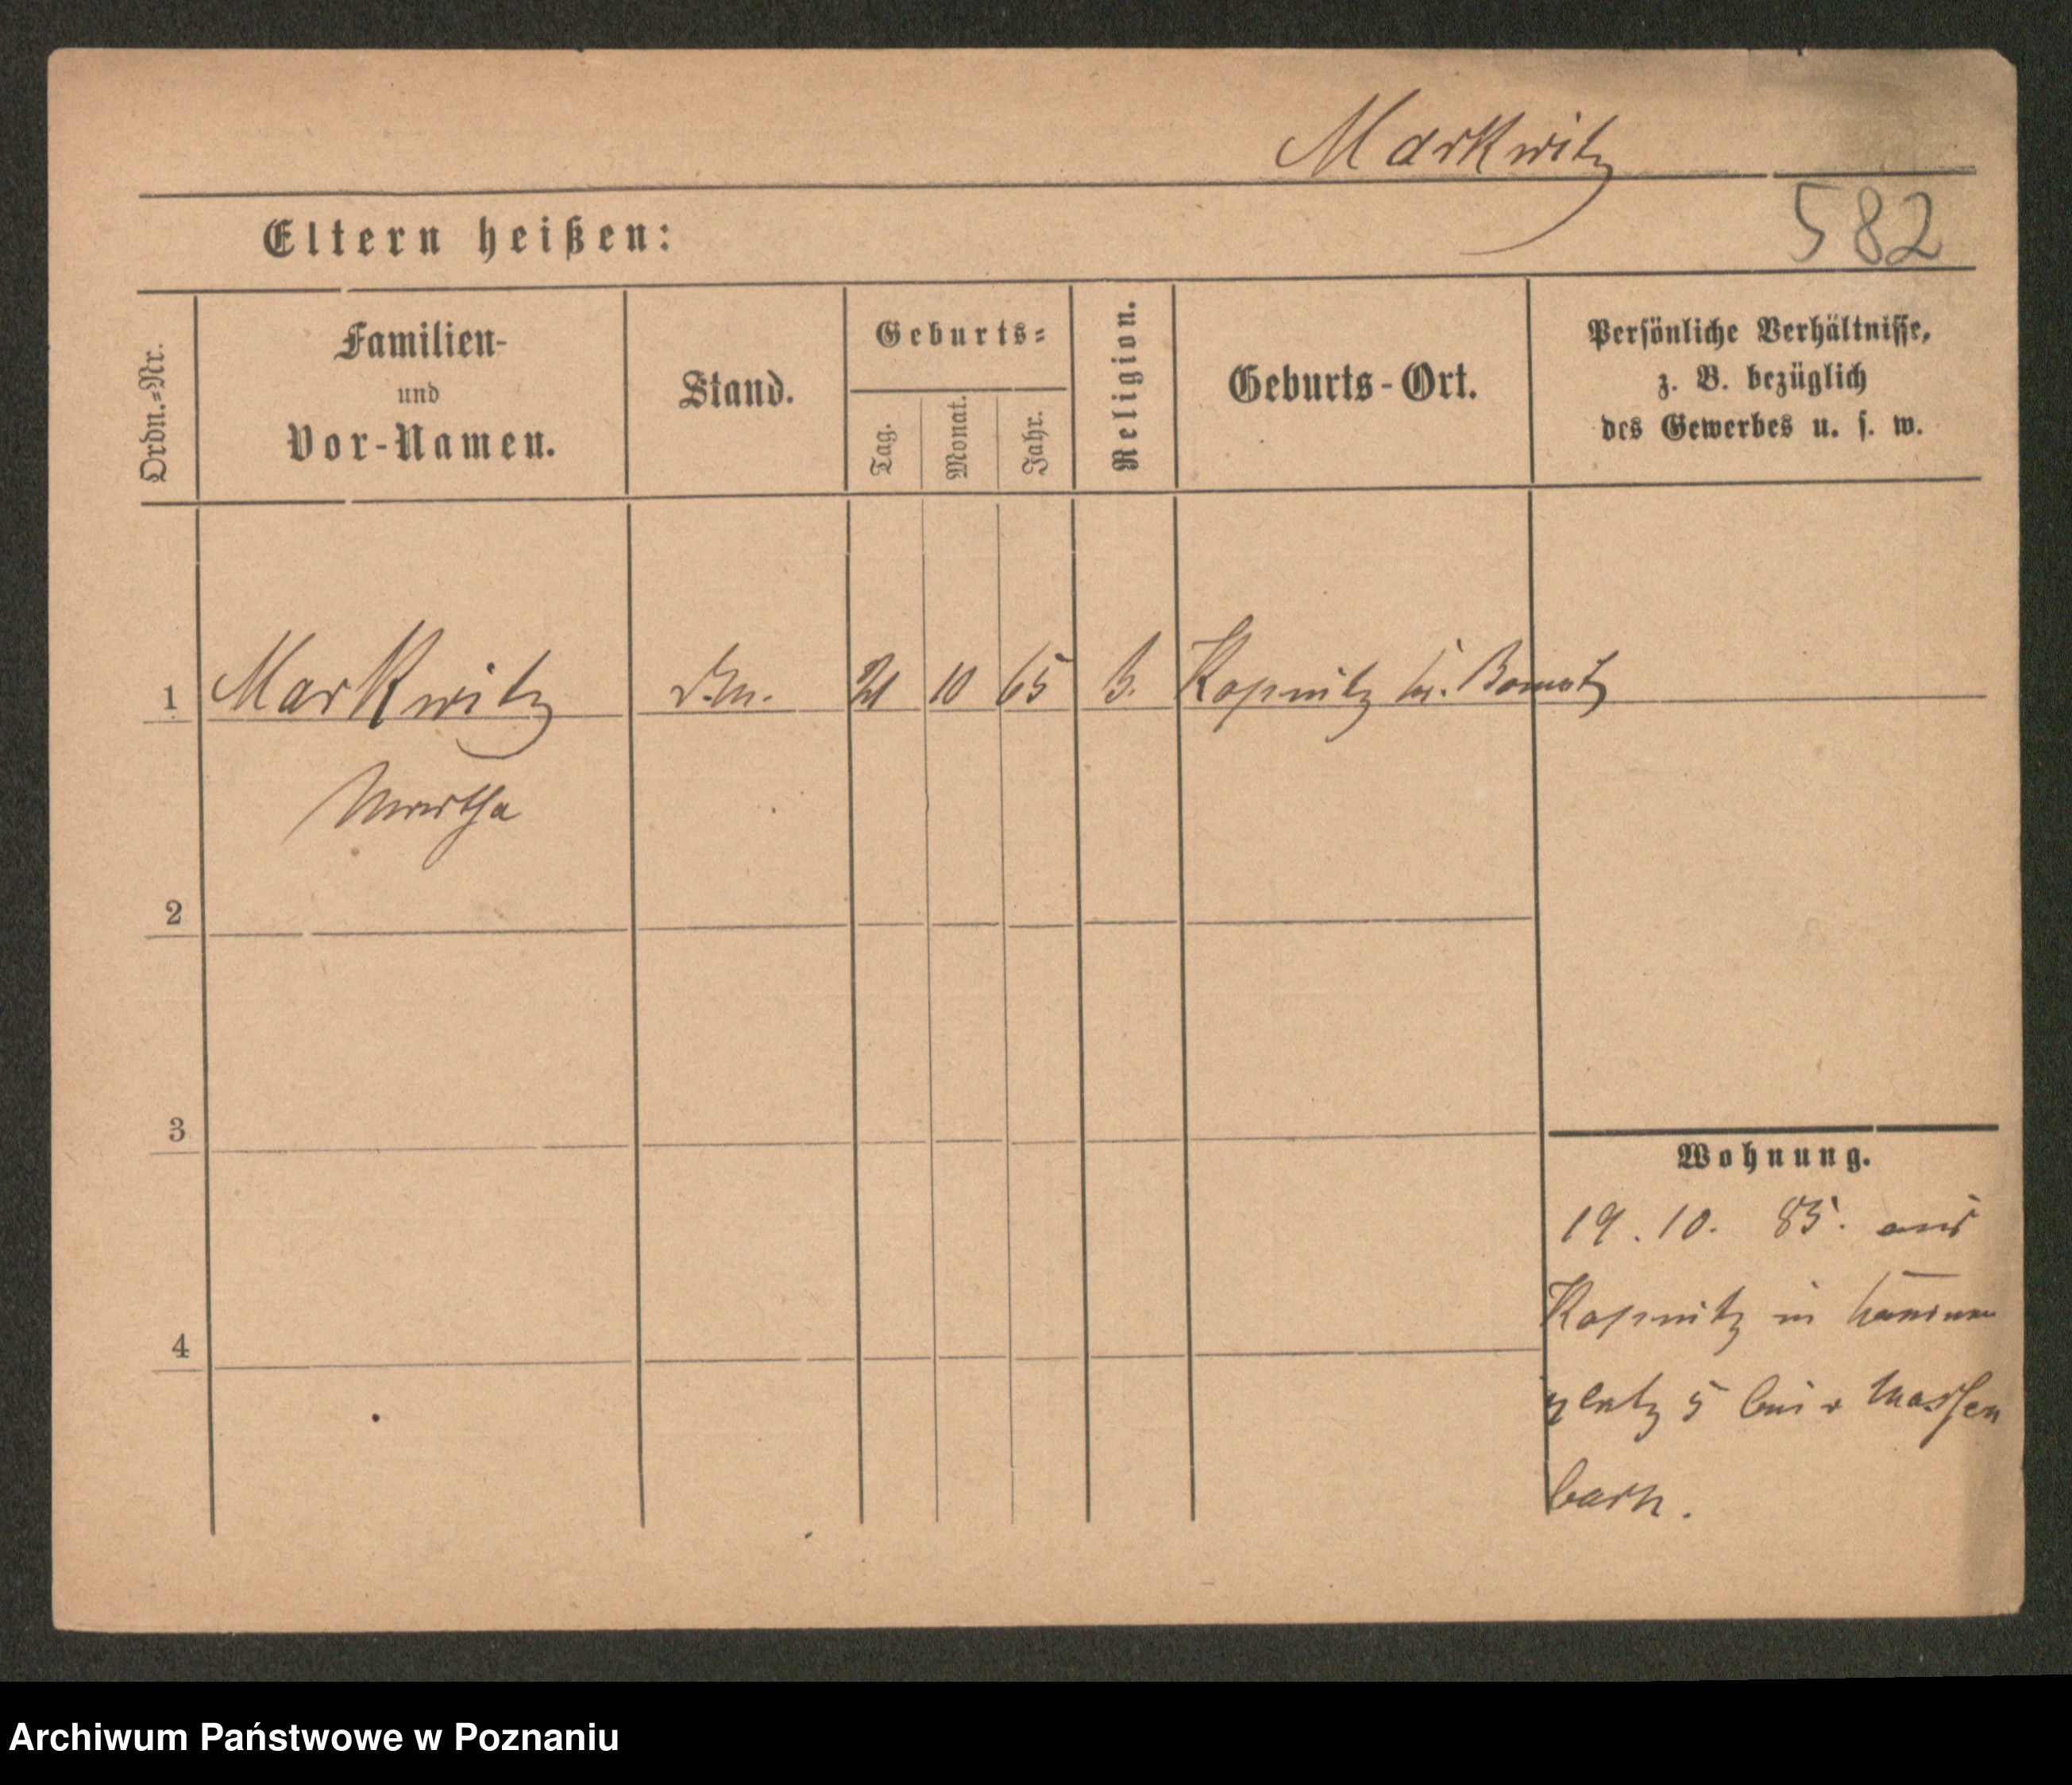 Markwitz
582
Eltern heißen:
Ordn.-Nr.
Familien-
und
Vor-Namen.
Stand.
Geburts-
Tag.
Monat.
Jahr.
Religion.
Geburts-Ort.
Persönliche Verhältnisse,
z. B. bezüglich
des Gewerbes u. s. w.
1 Markwitz 21 10 65 Kopnitz Kr. Bomst
Martha
2
3
4
Wohnung.
19. 10. 85. aus
Kopnitz in
platz 5 bei
bach.
Archiwum Państwowe w Poznaniu